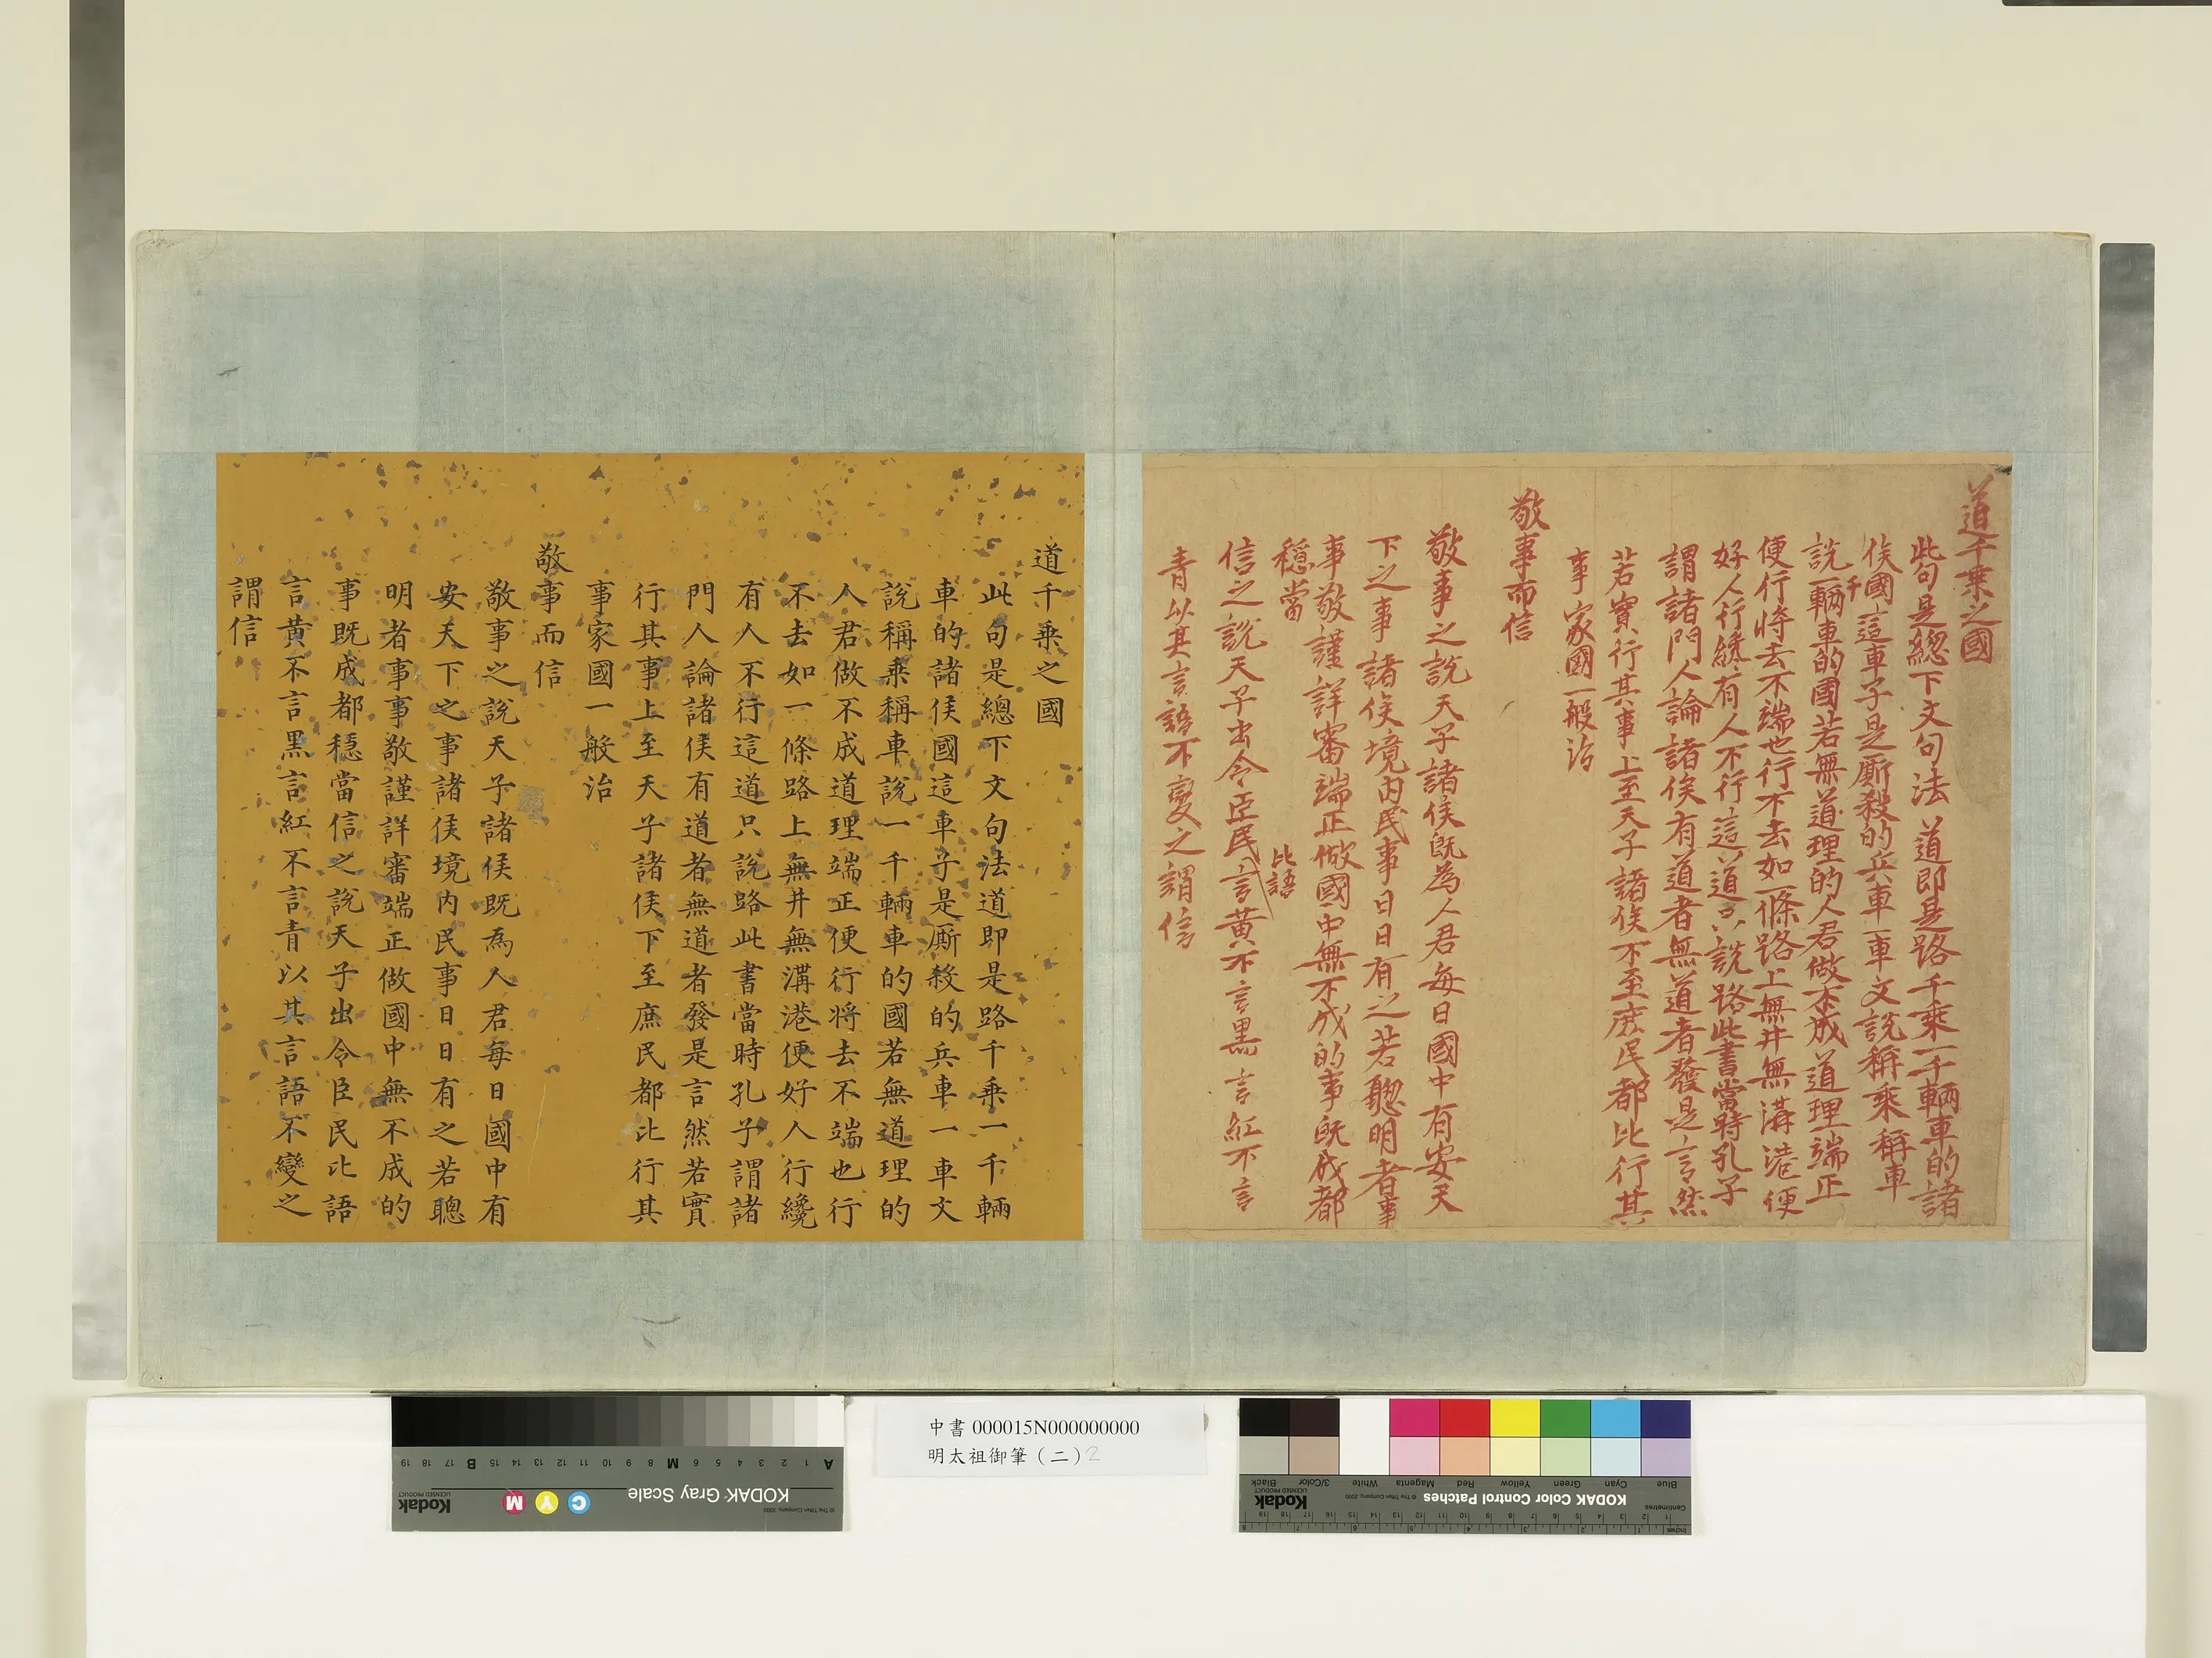 道千乗之國
此句是總下文句法道即是路千乗一千輛車的諸
侯國這車子是厮殺的兵車一車文說稱乗稱車
說一千輛車的國若無道理的人君做不成道理端正
便行將去不端也行不去如一條路上無井無溝港便
好人行纔有人不行這道只說路此書當時孔子
謂諸門人論諸侯有道者無道者發是言然
若實行其事上至天子諸侯下至庶民都比行其
事家國一般治
敬事而信
敬事之說天子諸侯既為人君每日國中有安天
下之事諸侯境內民事日日有之若聰明者事
事敬謹詳審端正做國中無不成的事既成都
穩當
比語
信之說天子出令臣民言黃不言黑言紅不言
青以其言語不變之謂信
道千乗之國
此句是總下文句法道即是路千乗一千輛
車的諸侯國這車子是厮殺的兵車一車文
說稱乗稱車說一千輛車的國若無道理的
人君做不成道理端正便行將去不端也行
不去如一條路上無井無溝港便好人行纔
有人不行這道只說路此書當時孔子謂諸
門人論諸侯有道者無道者發是言然若實
行其事上至天子諸侯下至庶民都比行其
事家國一般治
敬事而信
敬事之說天子諸侯既為人君每日國中有
安天下之事諸侯境內民事日日有之若聰
明者事事敬謹詳審端正做國中無不成的
事既成都穩當信之說天子出令臣民比語
言黃不言黑言紅不言青以其言語不變之
謂信
中書 000015N000000000
明太祖御筆（二）2
KODAK Gray Scale
Kodak
LICENSED PRODUCT
C Y M
© The Tiffen Company, 2000
A 1 2 3 4 5 6 M 8 9 10 11 12 13 14 15 B 17 18 19
KODAK Color Control Patches
Kodak
LICENSED PRODUCT
© The Tiffen Company, 2000
Blue Cyan Green Yellow Red Magenta White 3/Color Black
Centimetres
Inches